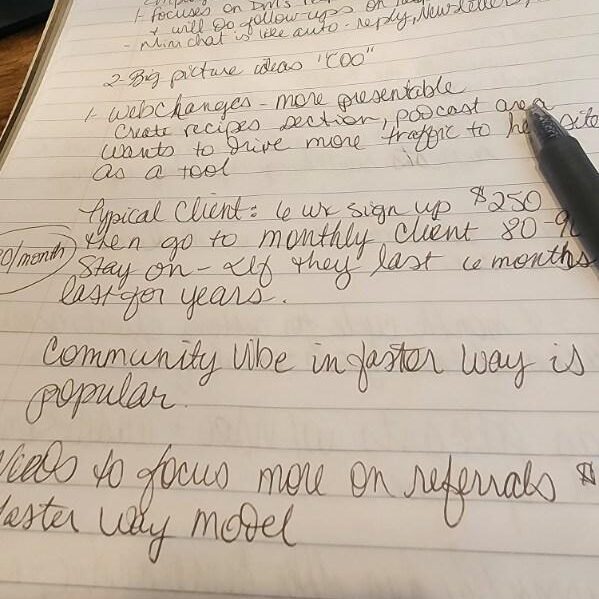 + focuses on DM's
+ will do follow ups on
- Minichat is like auto-reply, Newsletters,
2 Big picture ideas "COO"
+ Web changes - more presentable
Create recipes section, podcast area
wants to drive more traffic to her site
as a tool
Typical Client: 6 wk sign up $250
then go to monthly client 80%
0/month
Stay on - If they last 6 months
last for years.
Community Vibe in faster way is
popular.
Needs to focus more on referrals $
faster way model